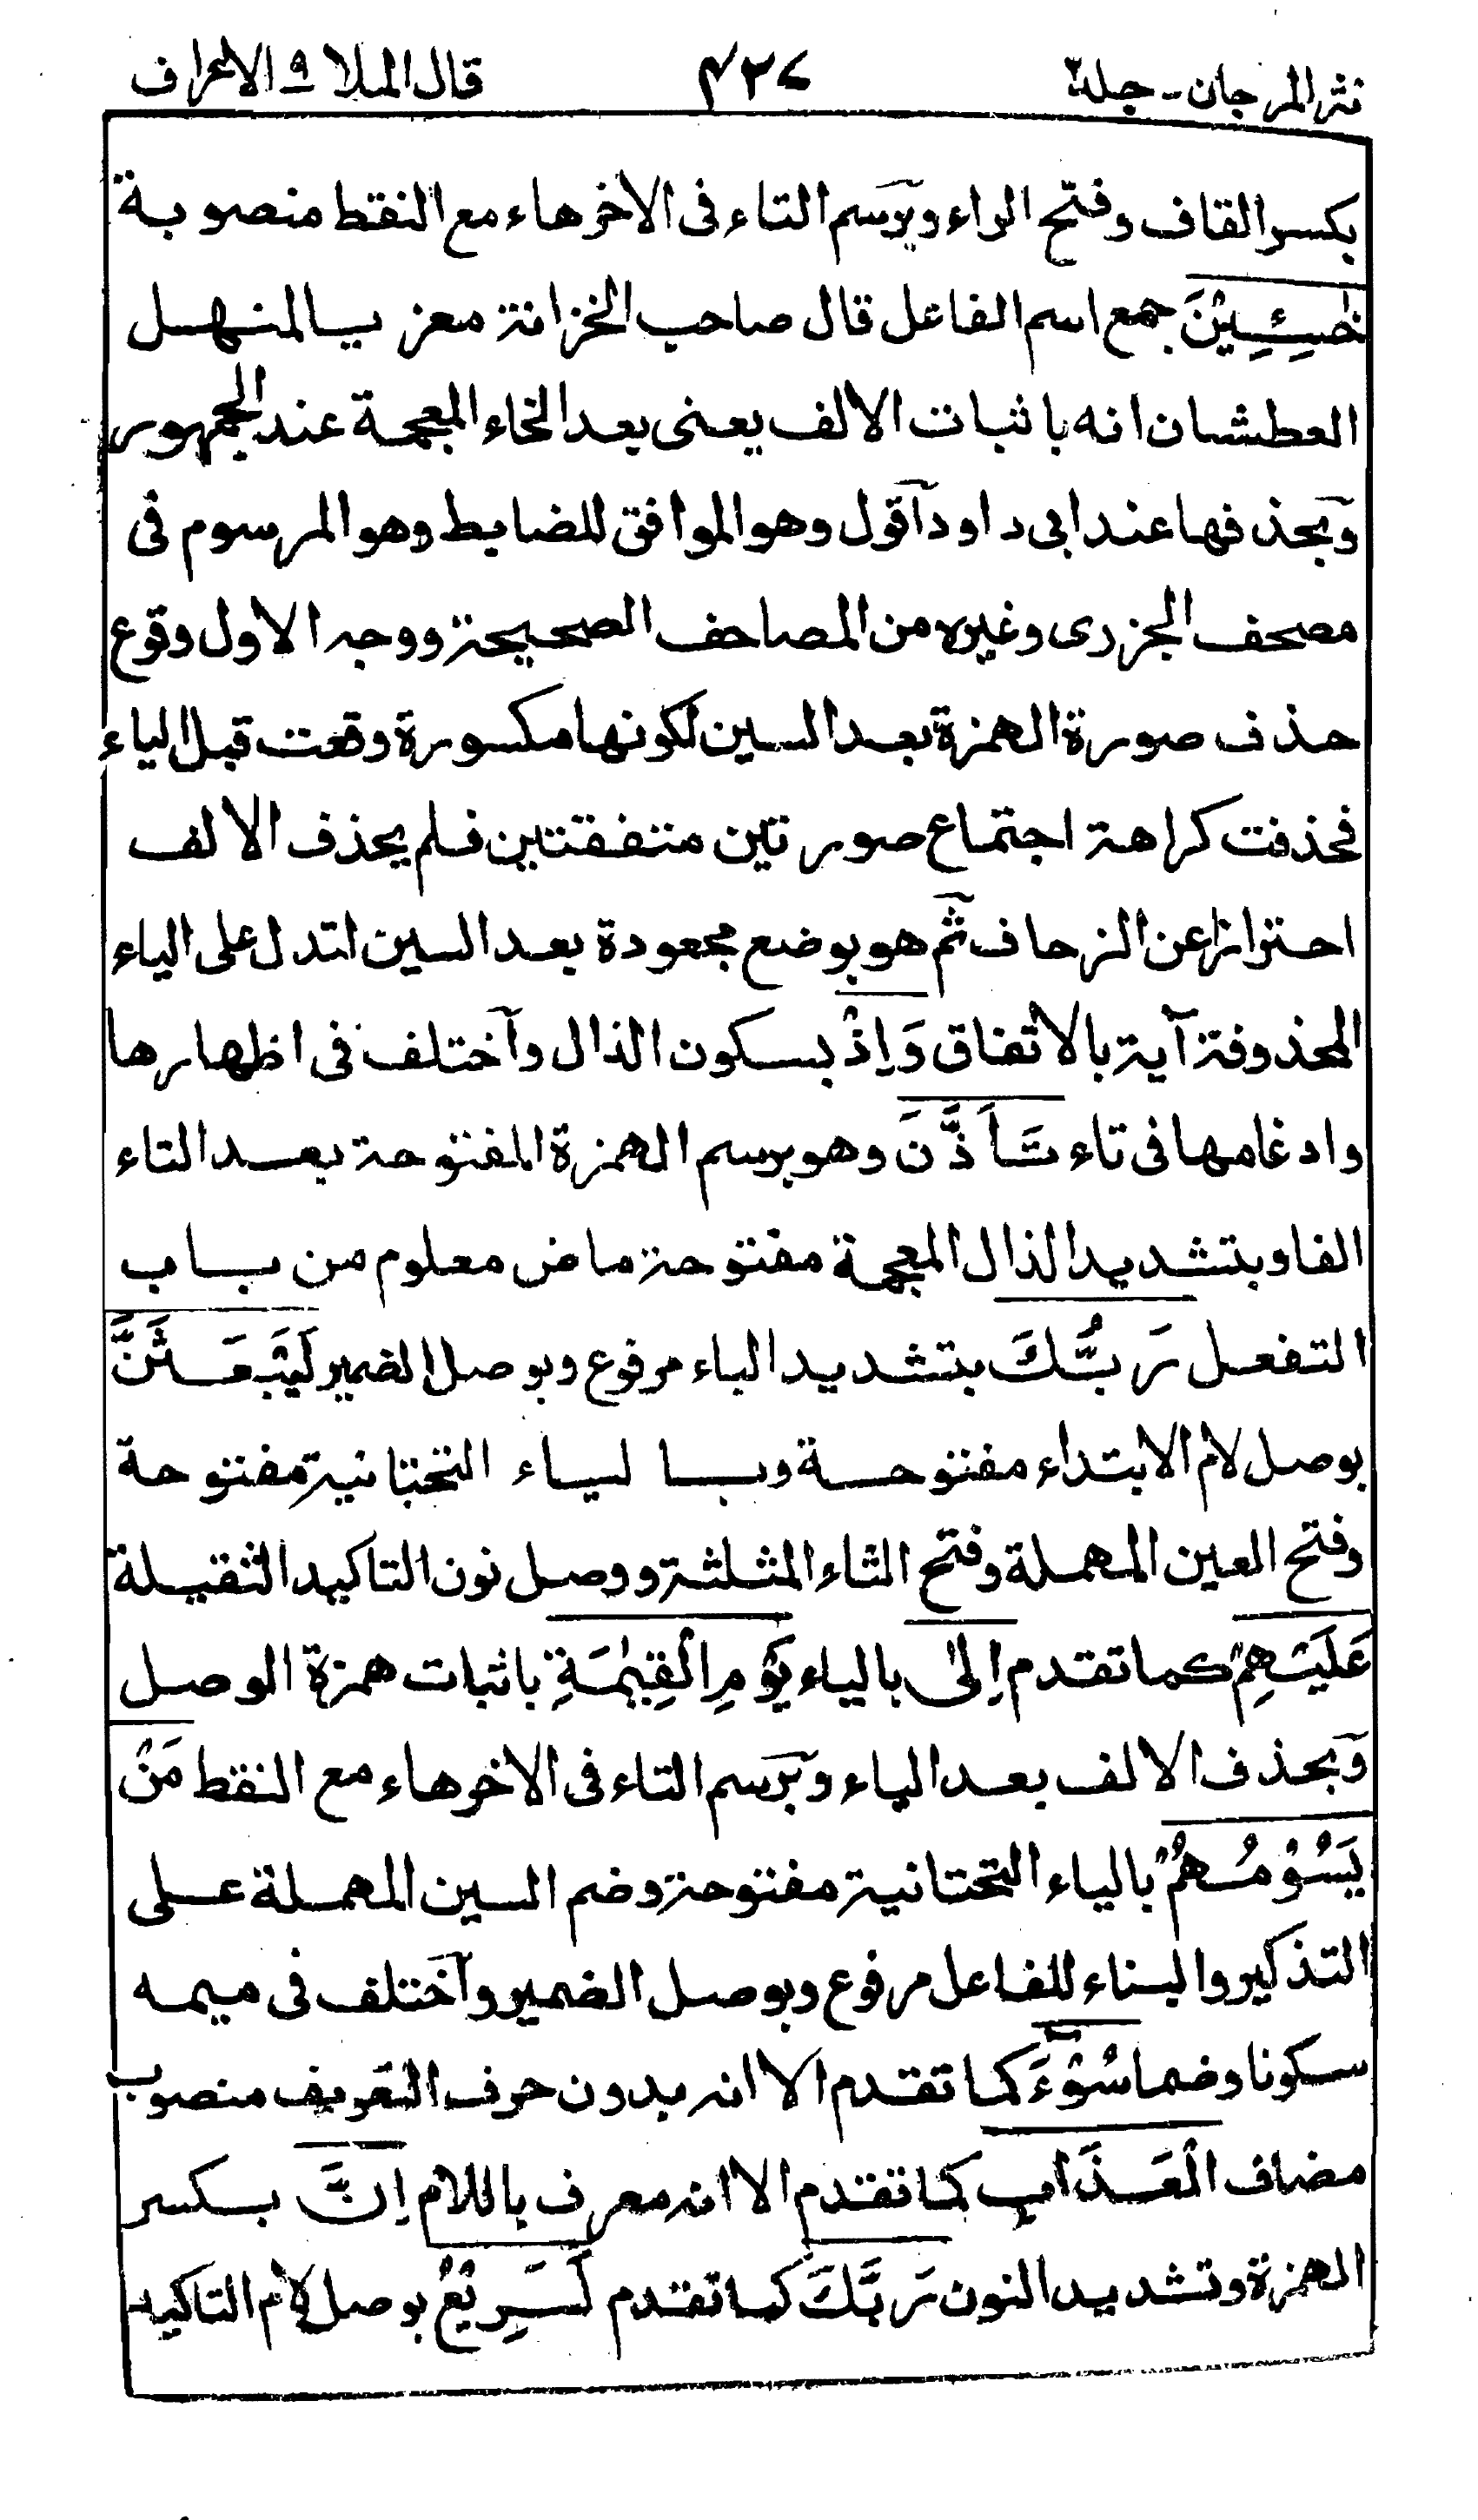 نثر المرجان - جلد٢ ٤٢٧ قال الملا ٩ الاعراف
بكسر القاف وفتح الراء وبرسم التاء فى الاخر هاء مع النقط منصوبة
خٰسِـِٕيْنَ جمع اسم الفاعل قال صاحب الخزانة معزيا لمنهل
العطشان انه باثبات الالف يعنى بعد الخاء المعجمة عند الجمهور
وبحذفها عند ابى داود اقول وهو الموافق للضابط وهو المرسوم فى
مصحف الجزرى وغيره من المصاحف الصحيحة ووجه الاول وقوع
حذف صورة الهمزة بعد السين لكونها مكسورة وقعت قبل الياء
فحذفت كراهة اجتماع صورتين متفقتين فلم يحذف الالف
احترازا عن الزحاف ثم هو بوضع مجعودة بعد السين لتدل على الياء
المحذوفة آية بالاتفاق وَاِذْ بسكون الذال واختلف فى اظهارها
وادغامها فى تاء تَاَذَّنَ وهو برسم الهمزة المفتوحة بعد التاء
الفا وبتشديد الذال المعجمة مفتوحة ماض معلوم من باب
التفعل رَبُّكَ بتشديد الباء مرفوع وبوصل الضمير لَيَبْعَثَنَّ
بوصل لام الابتداء مفتوحة وبالياء التحتانية مفتوحة
وفتح العين المهملة وفتح الثاء المثلثة ووصل نون التاكيد الثقيلة
عَلَيْهِمْ كما تقدم اِلٰى بالياء يَوْمِ الْقِيٰمَةِ باثبات همزة الوصل
وبحذف الالف بعد الياء وبرسم التاء فى الاخر هاء مع النقط مَنْ
يَسُوْمُهُمْ بالياء التحتانية مفتوحة وضم السين المهملة على
التذكير والبناء للفاعل مرفوع وبوصل الضمير واختلف فى ميمه
سكونا وضما سُوْٓءَ كما تقدم الا انه بدون حرف التعريف منصوب
مضاف الْعَذَابِ كما تقدم الا انه معرف باللام اِنَّ بكسر
الهمزة وتشديد النون رَبَّكَ كما تقدم لَسَرِيْعُ بوصل لام التاكيد